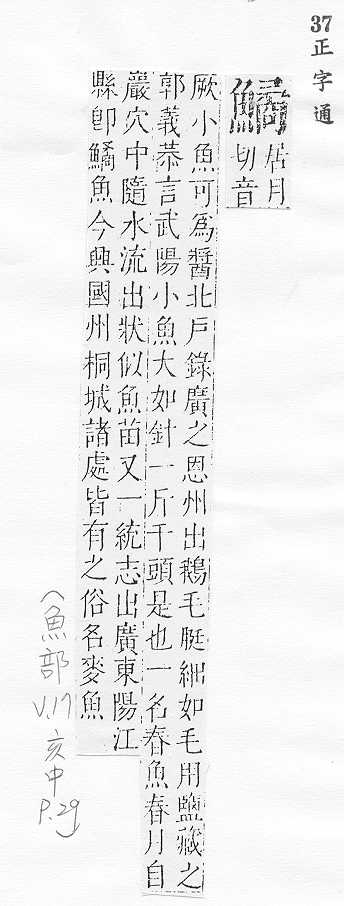 37
正字通
鱊
居月
切音
厥小魚可爲醬北戸錄廣之恩州出鵝毛脡細如毛用鹽藏之
郭義恭言武陽小魚大如針一斤千頭是也一名春魚春月自
巖穴中隨水流出狀似魚苗又一統志出廣東陽江
縣卽鱊魚今興國州桐城諸處皆有之俗名麥魚
(魚部 V.17 亥中 P.29